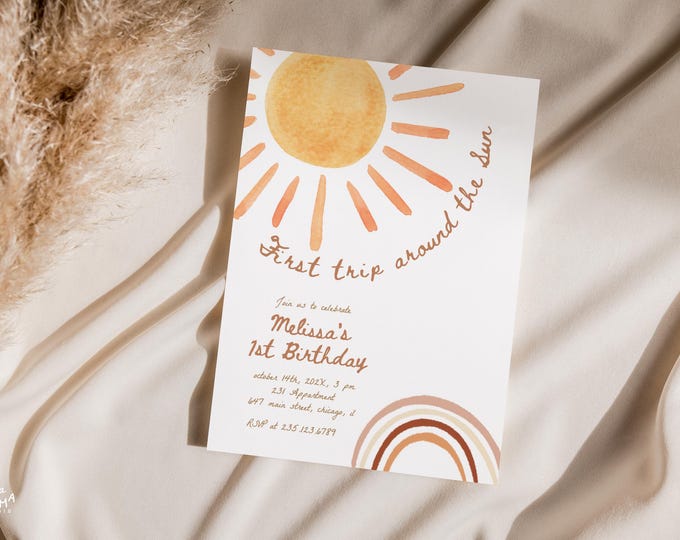 First trip around the Sun
Join us to celebrate
Melissa's
1st Birthday
october 14th, 202X, 3 pm
231 Appartment
647 main street, chicago, il
RSVP at 235.123.6789